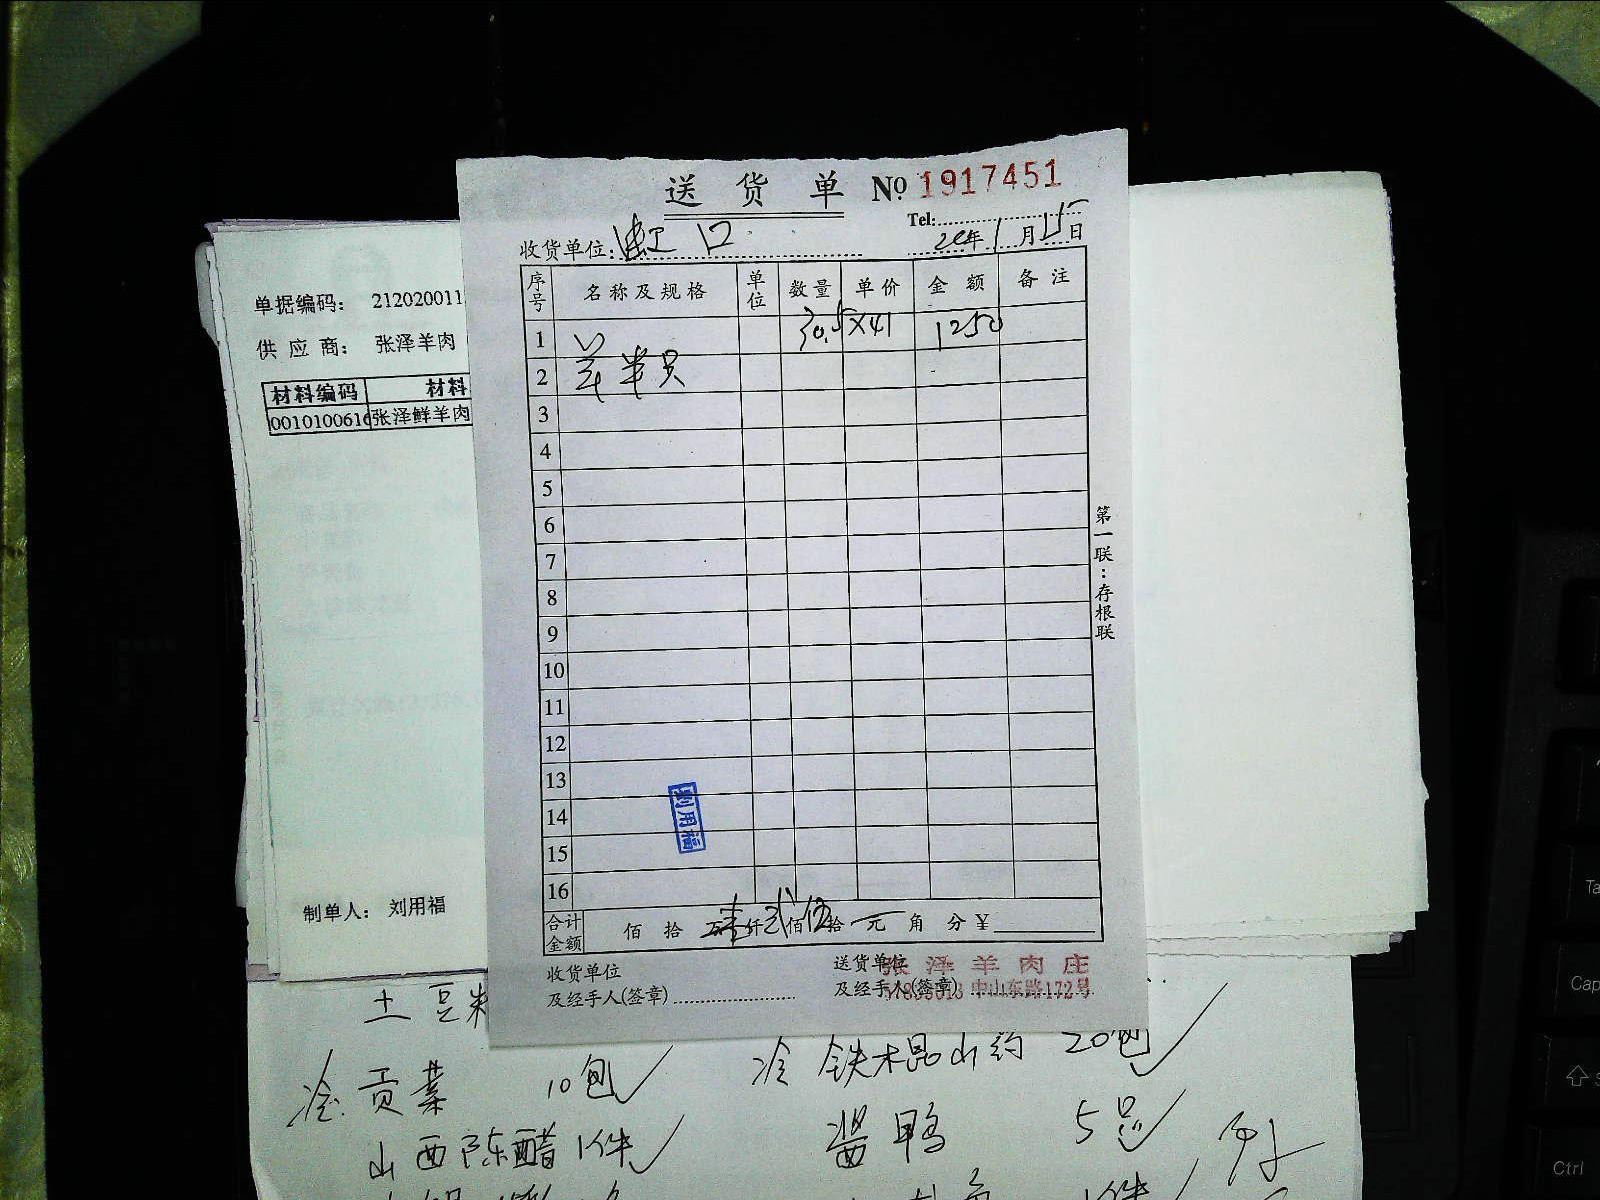 送 货 单 № 1917451
Tel:
收货单位: 虹口 年 1 月 15 日
序号 名称及规格 单位 数量 单价 金额 备注
1 30.5×41 1250
2 羊半只
3
4
5
6
7
8
9
10
11
12
13
14
15
16
刘用福
合计金额 佰 拾 万 壹 仟 贰 佰 伍 拾 元 角 分 ¥
收货单位
及经手人(签章)
送货单位
及经手人(签章)
张泽羊肉庄
中山东路172号
第一联:存根联
单据编码: 212020011
供应商: 张泽羊肉
材料编码 材料
0010100616 张泽鲜羊肉
制单人: 刘用福
土豆
冷 贡菜 10包
山西陈醋 1件
冷 铁木棍山药 20包
酱鸭 5只
1件
Ctrl